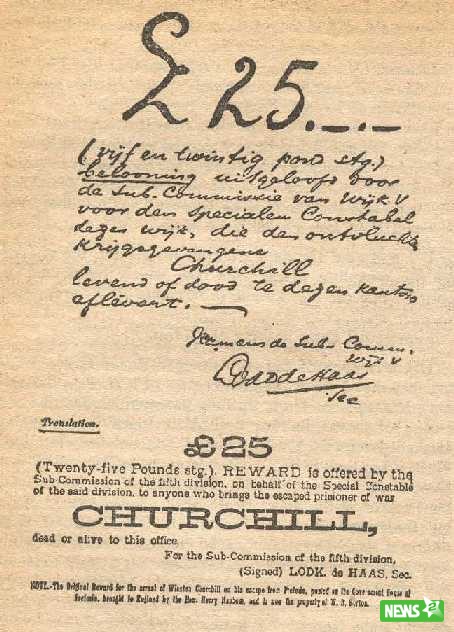 £ 25.—.—
(vijf en twintig pond stg.)
belooning uitgeloofd door
de Sub. Commissie van Wijk V
voor den Specialen Constabel
dezer wijk, die den ontvluchte
Krijgsgevangene
Churchill
levend of dood te dezer kantore
aflevert. —
Namens de Sub. Comm.
Wijk V
Lodk de Haas
Sec
Translation.
£25
(Twenty-five Pounds stg.). REWARD is offered by the
Sub-Commission of the fifth division, on behalf of the Special Constable
of the said division, to anyone who brings the escaped prisioner of war
CHURCHILL,
dead or alive to this office.
For the Sub-Commission of the fifth division,
(Signed) LODK. de HAAS, Sec.
NOTE.-The Original Reward for the arrest of Winston Churchill on his escape from Pretoria, posted on the Government House at
Pretoria, brought to England by the Hon. Henry Masham, and is now the property of W. R. Burton.
NEWS 2